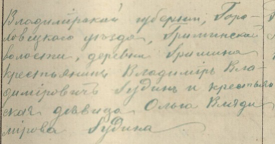 Владимірской губерніи, Горо-
ховецкаго уѣзда, Гришинской
волости, деревни Гришина
крестьянинъ Владиміръ Вла-
диміровичъ Будинъ и крестьян-
ская дѣвица Ольга Влади-
мірова Будина